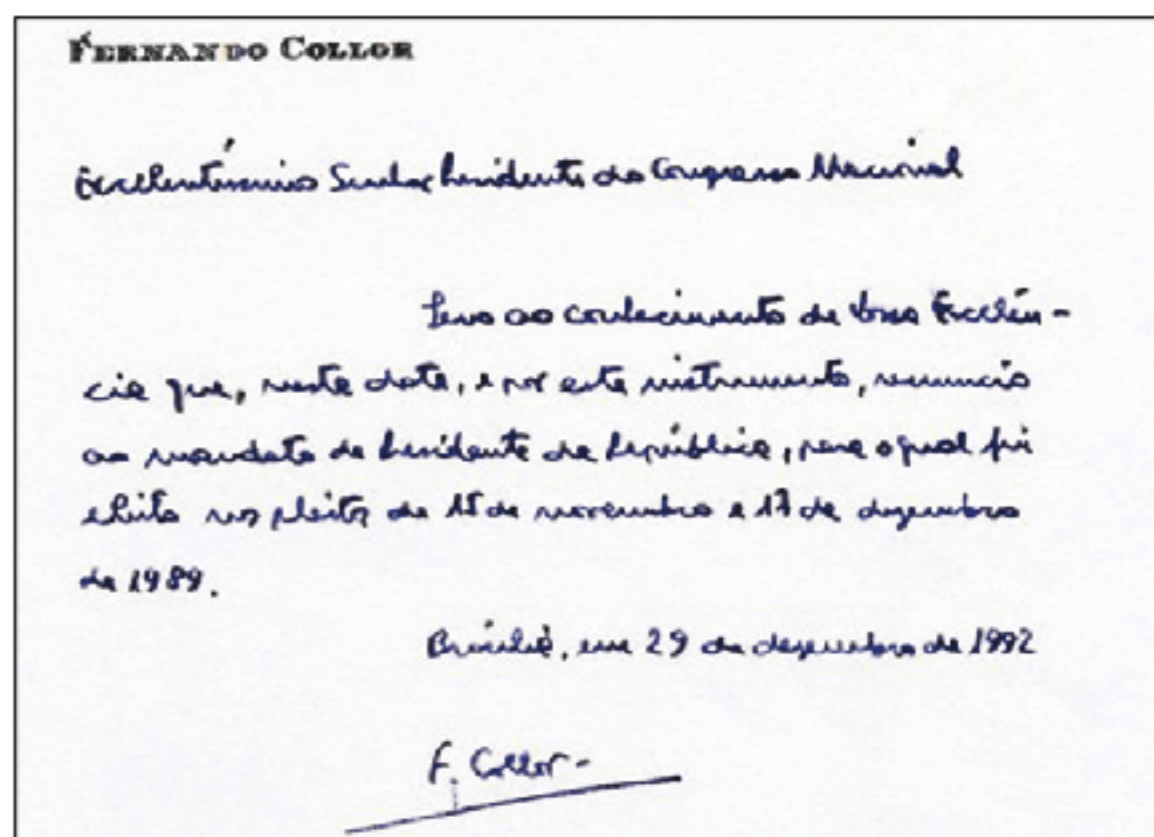 FERNANDO COLLOR
Excelentíssimo Senhor Presidente do Congresso Nacional
Levo ao conhecimento de Vossa Excelên-
cia que, nesta data, e por este instrumento, renuncio
ao mandato de Presidente da República, para o qual fui
eleito nos pleitos de 15 de novembro e 17 de dezembro
de 1989.
Brasília, em 29 de dezembro de 1992
F. Collor-